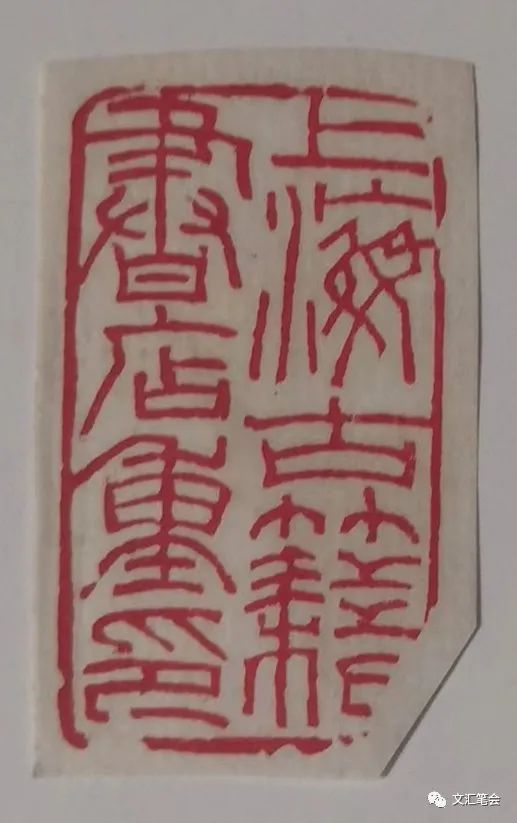 上海古籍
書店重印
文汇笔会